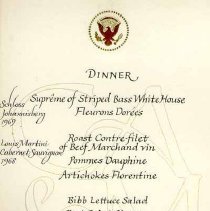 DINNER
Schloss
Johannisberg
1969
Suprême of Striped Bass White House
Fleurons Dorées
Louis Martini
Cabernet Sauvignon
1968
Roast Contre-filet
of Beef Marchand vin
Pommes Dauphine
Artichokes Florentine
Bibb Lettuce Salad